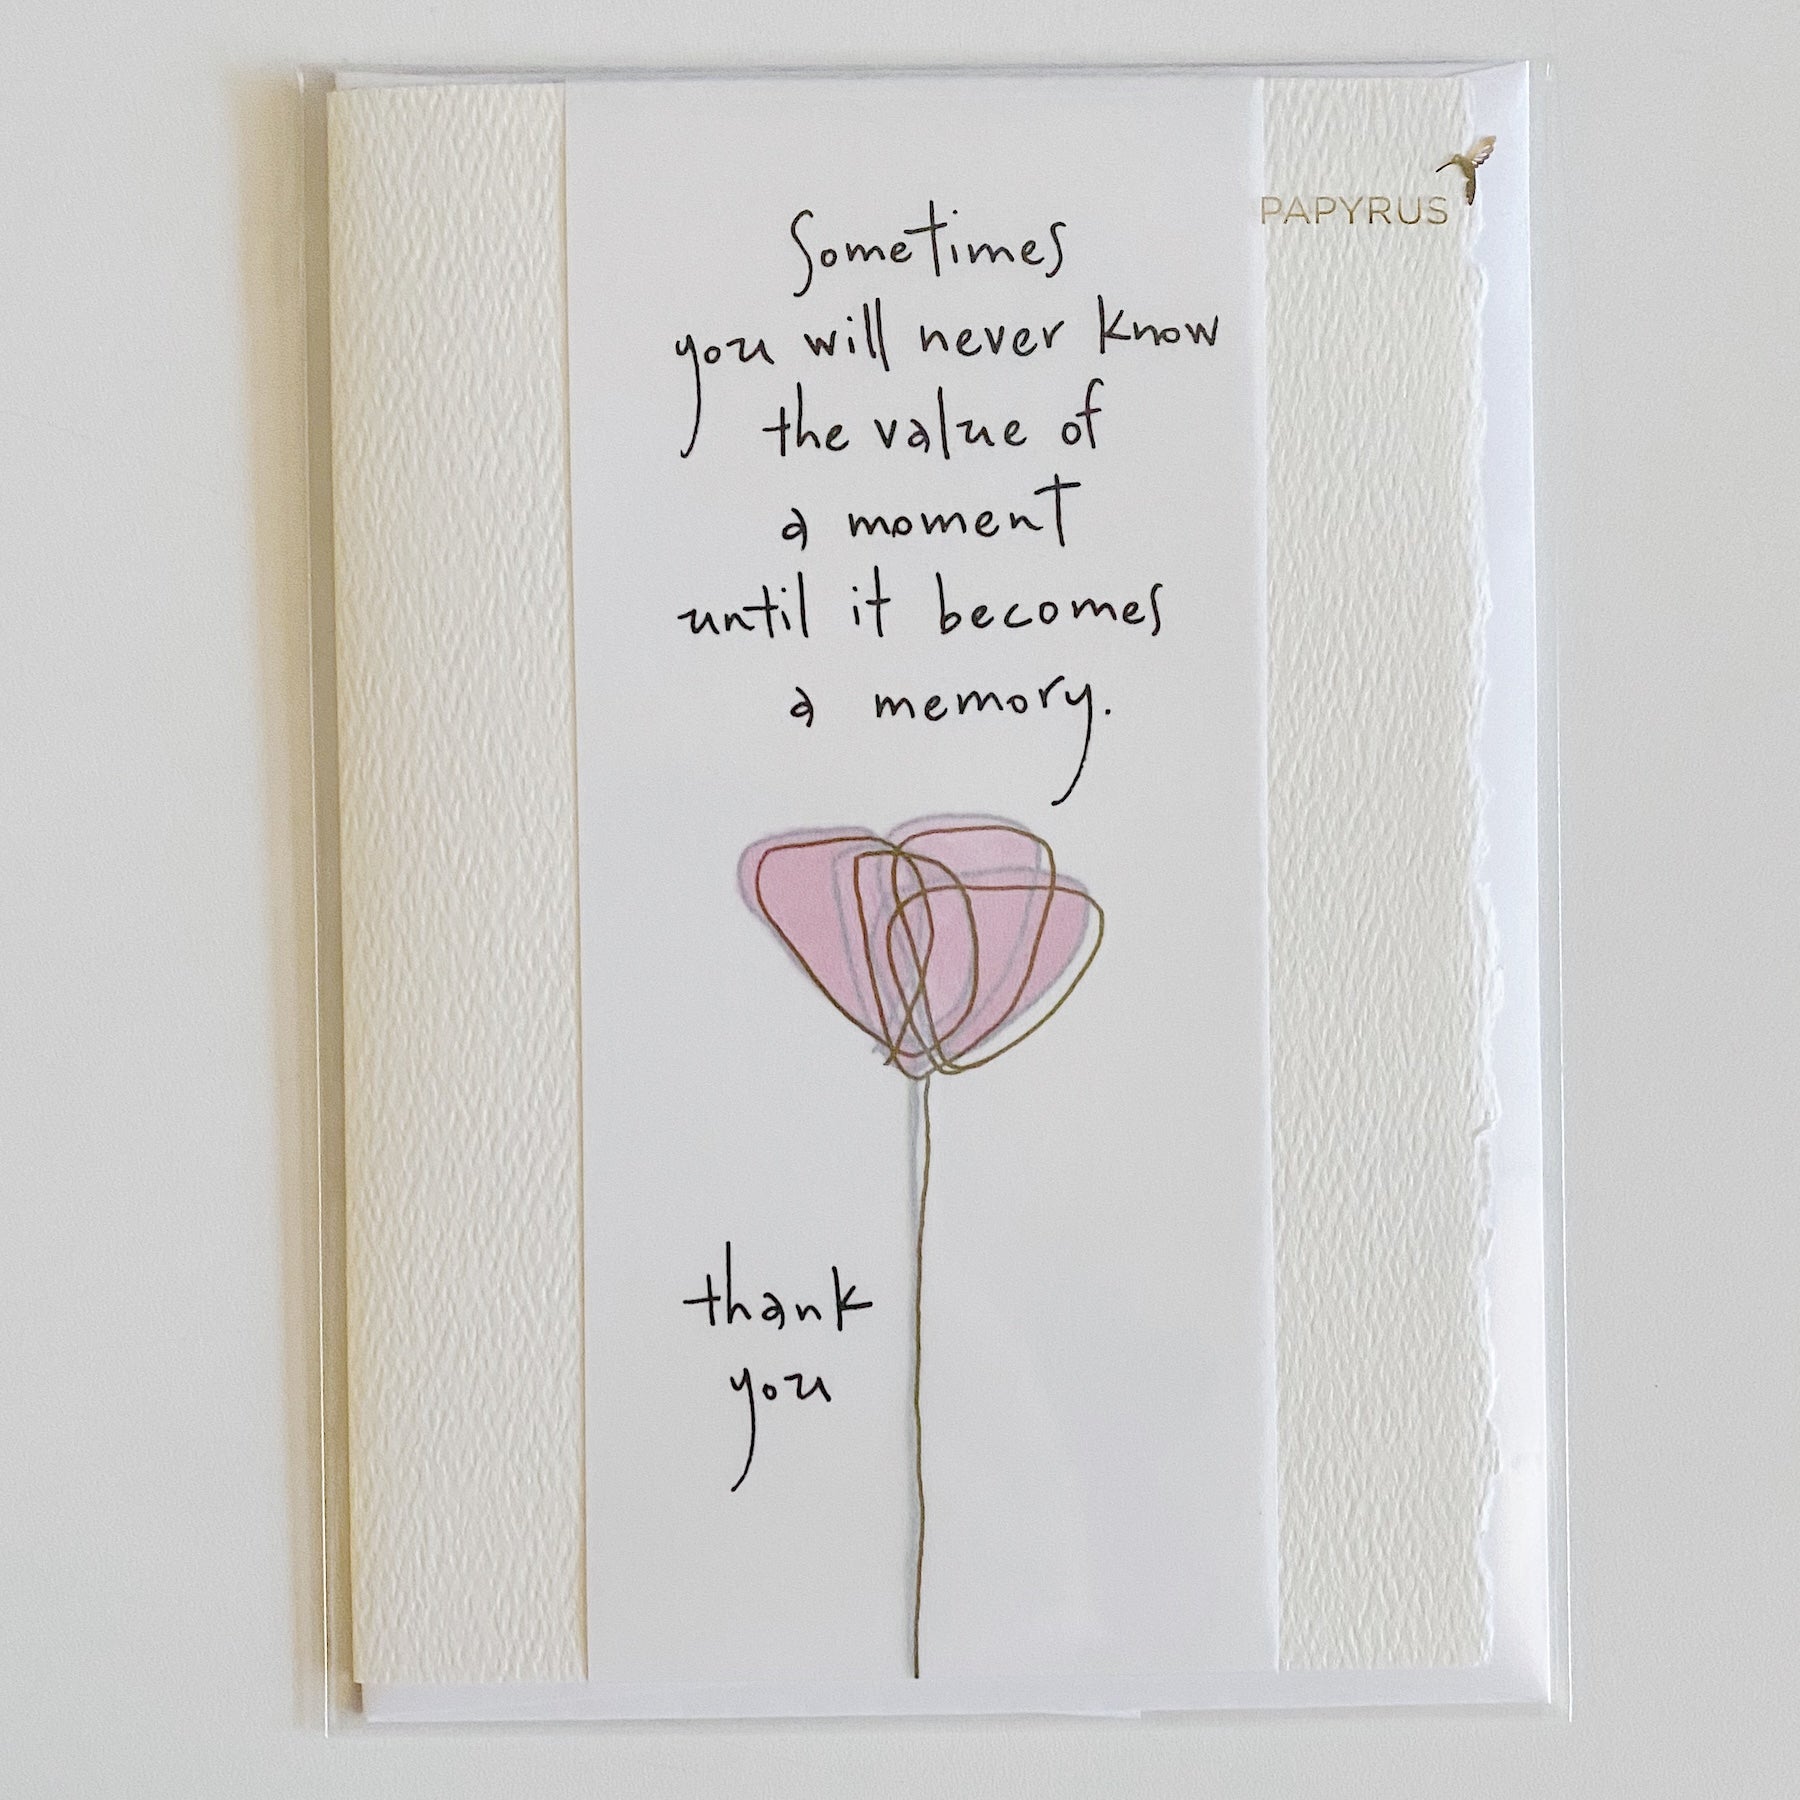 PAPYRUS
Sometimes
you will never know
the value of
a moment
until it becomes
a memory.
thank
you